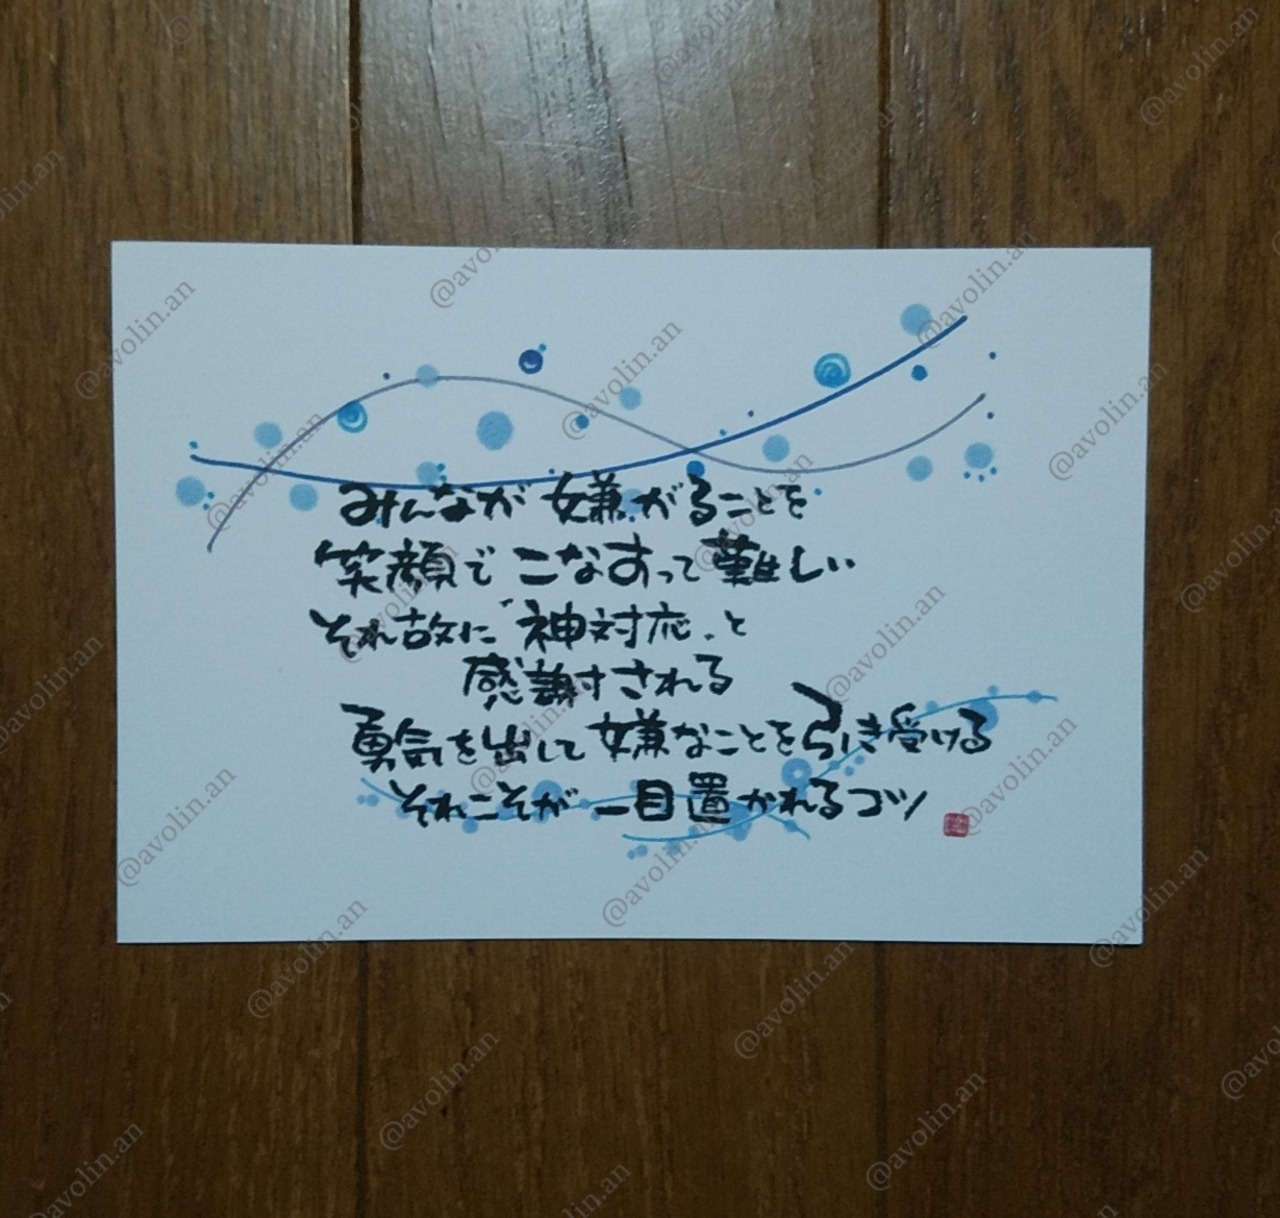 みんなが嫌がることを
笑顔でこなすって難しい
それ故に“神対応”と
感謝される
勇気を出して嫌なことを引き受ける
それこそが一目置かれるコツ
@avolin.an